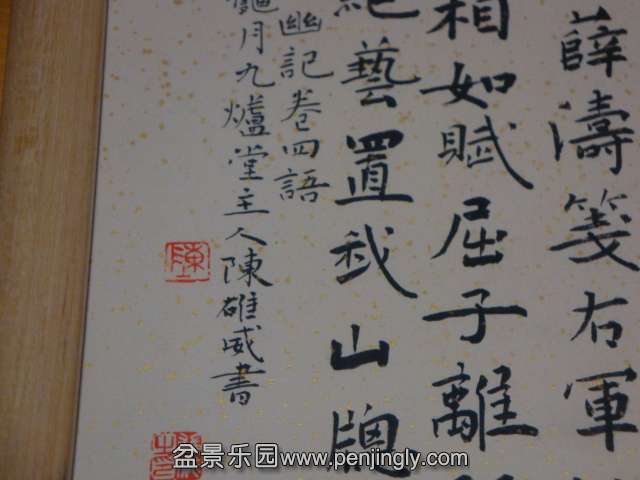 薛濤箋右軍
相如賦屈子離
絕藝置我山牕
幽記卷四語
月九爐堂主人陳雄威書
陳
盆景乐园www.penjingly.com